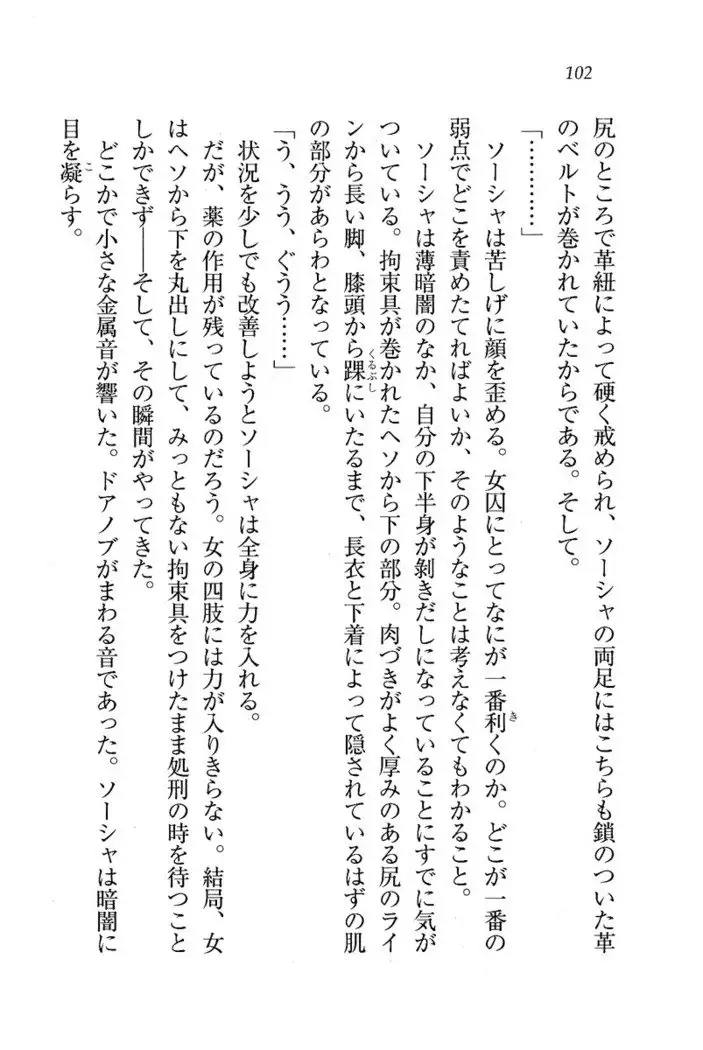 102
尻のところで革紐によって硬く戒められ、ソーシャの両足にはこちらも鎖のついた革
のベルトが巻かれていたからである。そして。
「…………」
ソーシャは苦しげに顔を歪める。女囚にとってなにが一番利くのか。どこが一番の
き
弱点でどこを責めたてればよいか、そのようなことは考えなくてもわかること。
ソーシャは薄暗闇のなか、自分の下半身が剝きだしになっていることにすでに気が
ついている。拘束具が巻かれたヘソから下の部分。肉づきがよく厚みのある尻のライ
ンから長い脚、膝頭から踝にいたるまで、長衣と下着によって隠されているはずの肌
くるぶし
の部分があらわとなっている。
「う、うう、ぐうう……」
状況を少しでも改善しようとソーシャは全身に力を入れる。
だが、薬の作用が残っているのだろう。女の四肢には力が入りきらない。結局、女
はヘソから下を丸出しにして、みっともない拘束具をつけたまま処刑の時を待つこと
しかできず――そして、その瞬間がやってきた。
どこかで小さな金属音が響いた。ドアノブがまわる音であった。ソーシャは暗闇に
目を凝らす。
こ